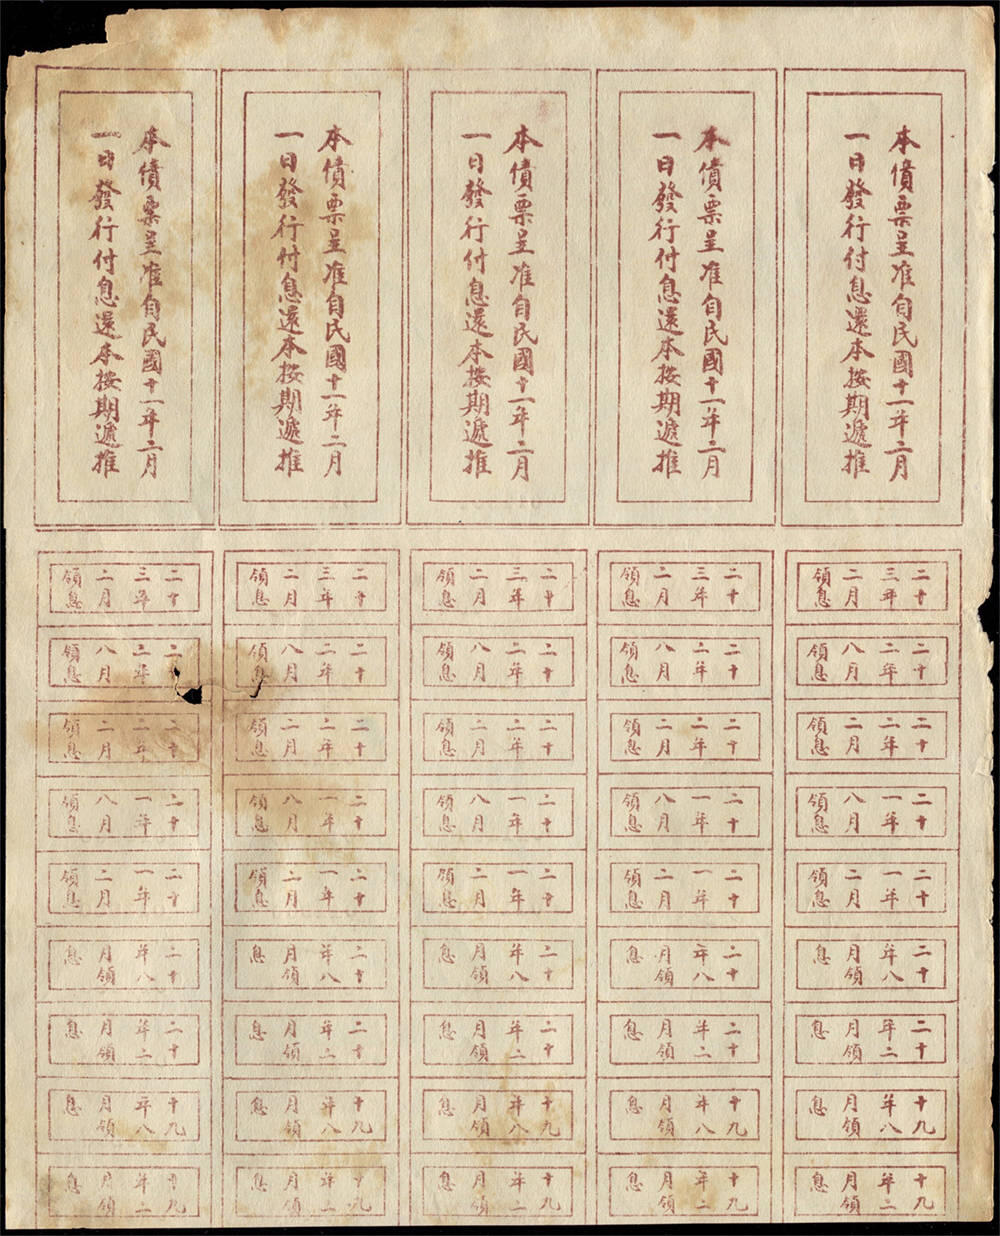 本債票呈准自民國十一年二月
一日發行付息還本按期遞推
本債票呈准自民國十一年二月
一日發行付息還本按期遞推
本債票呈准自民國十一年二月
一日發行付息還本按期遞推
本債票呈准自民國十一年二月
一日發行付息還本按期遞推
本債票呈准自民國十一年二月
一日發行付息還本按期遞推
二十三年二月領息
二十三年二月領息
二十三年二月領息
二十三年二月領息
二十三年二月領息
二十二年八月領息
二十二年八月領息
二十二年八月領息
二十二年八月領息
二十二年八月領息
二十二年二月領息
二十二年二月領息
二十二年二月領息
二十二年二月領息
二十二年二月領息
二十一年八月領息
二十一年八月領息
二十一年八月領息
二十一年八月領息
二十一年八月領息
二十一年二月領息
二十一年二月領息
二十一年二月領息
二十一年二月領息
二十一年二月領息
二十年八月領息
二十年八月領息
二十年八月領息
二十年八月領息
二十年八月領息
二十年二月領息
二十年二月領息
二十年二月領息
二十年二月領息
二十年二月領息
十九年八月領息
十九年八月領息
十九年八月領息
十九年八月領息
十九年八月領息
十九年二月領息
十九年二月領息
十九年二月領息
十九年二月領息
十九年二月領息